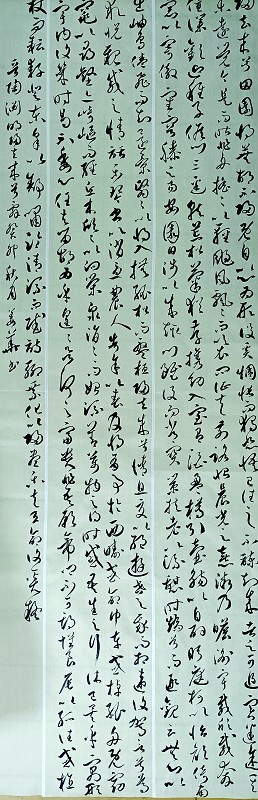 歸去來兮田園將蕪胡不歸既自以心為形役奚惆悵而獨悲悟已往之不諫知來者之可追實迷途其
未遠覺今是而昨非舟搖搖以輕颺風飄飄而吹衣問征夫以前路恨晨光之熹微乃瞻衡宇載欣載奔
僮僕歡迎稚子候門三逕就荒松菊猶存攜幼入室有酒盈樽引壺觴以自酌眄庭柯以怡顏倚南
窗以寄傲審容膝之易安園日涉以成趣門雖設而常關策扶老以流憩時矯首而遐觀雲無心以
出岫鳥倦飛而知還景翳翳以將入撫孤松而盤桓歸去來兮請息交以絕遊世與我而相違復駕言兮焉
求悅親戚之情話樂琴書以消憂農人告余以春及將有事於西疇或命巾車或棹孤舟既窈
窕以尋壑亦崎嶇而經丘木欣欣以向榮泉涓涓而始流善萬物之得時感吾生之行休已矣乎寓形
宇內復幾時曷不委心任去留胡為乎遑遑欲何之富貴非吾願帝鄉不可期懷良辰以孤往或植
杖而耘耔登東皋以舒嘯臨清流而賦詩聊乘化以歸盡樂夫天命復奚疑
晉陶淵明歸去來兮辭癸卯秋月